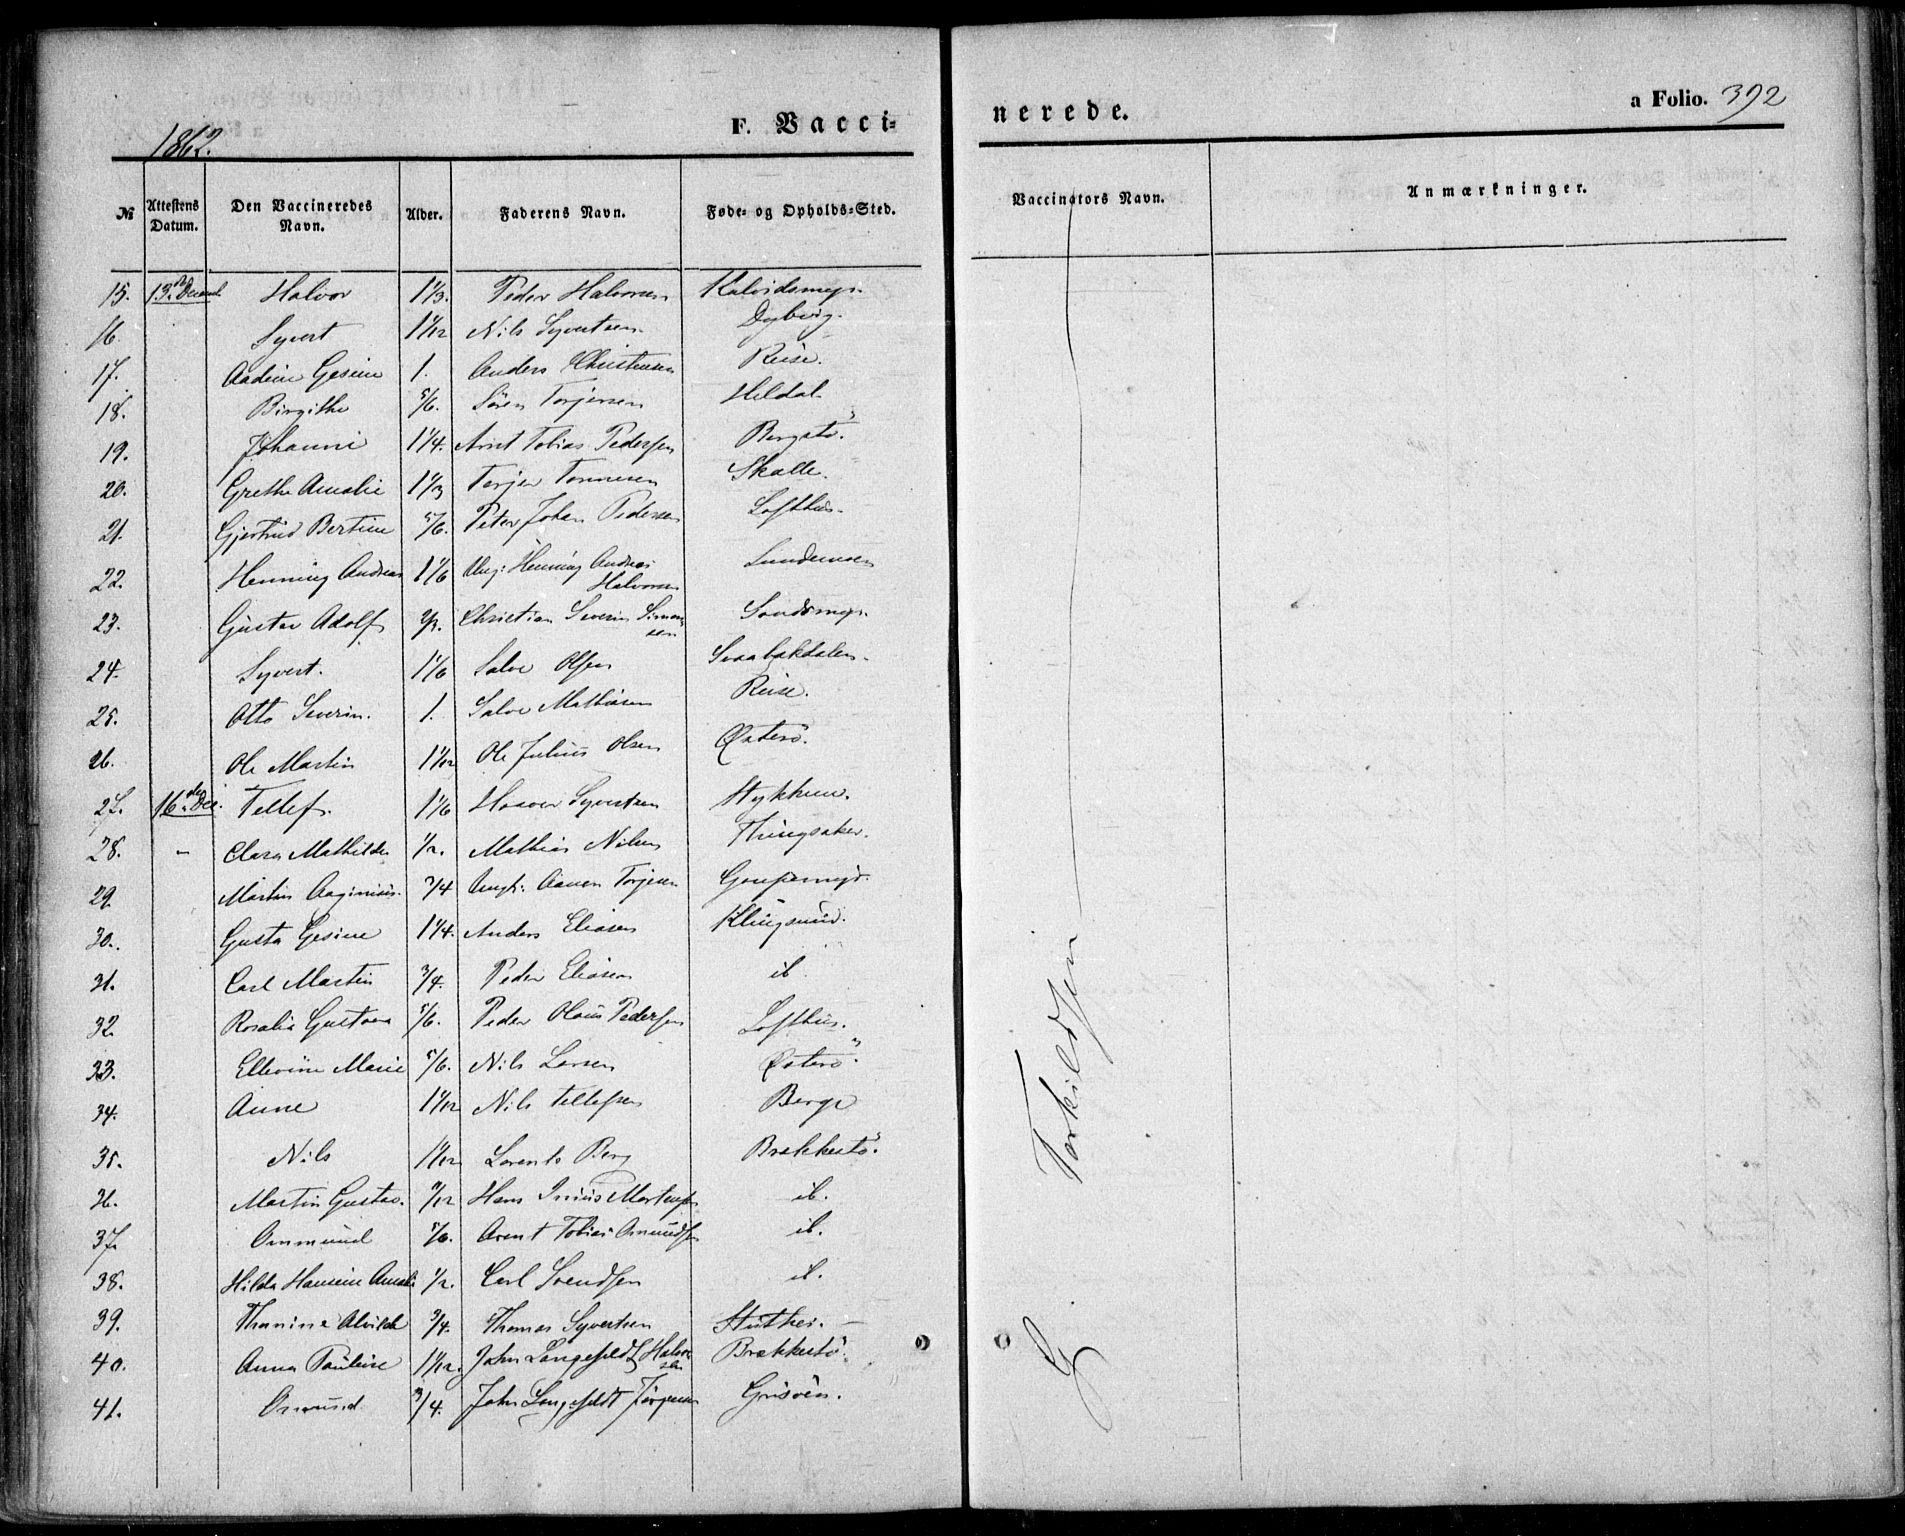 1862.
F. Vacci=
nerede.
a Folio. 392
№ Attestens Datum. Den Vaccineredes Navn. Alder. Faderens Navn. Føde= og Opholds=Sted. Vaccinators Navn. Anmærkninger.
15. 13de Decemb. Halvor 1 1/3. Peder Halvorsen Kalvidsmyr.
16. Syvert 1 1/12 Nils Syvertsen Dybvig.
17. Aadine Gesine 1. Anders Christensen Reise.
18. Birgithe 5/6. Søren Torjersen Heldal
19. Johanne 1 1/4. Arnt Tobias Pedersen Bergstö.
20. Grethe Amalie 1 1/3 Terjer Tønnesen Skalle.
21. Gjertrud Bertine 5/6. Peter Johan Pedersen Lofthus.
22. Henning Andreas 1 1/6 Ung: Henning Andreas Halvorsen
23. Gustav Adolf Christian Severin Simonsen
24. Syvert. 1 1/6 Salve Olsen Svaabækdalen.
25. Otto Severin. 1. Salve Mathiasen Reise.
26. Ole Martin 1 1/12 Ole Julius Olsen Østerö.
27. 16de Dec. Tellef. 1 1/6 Haaver Syvertsen
28. - Clara Mathilde 1/2. Mathias Nilsen Thingsaker.
29. Martin Aaginius. 3/4 Ungk: Aanen Torjesen
30. Gusta Gesine 1 1/4. Anders Eliasen
31. Carl Martin 3/4. Peder Eliasen ib.
32. Rosalie Gustava 5/6. Peder Olaus Pedersen Lofthus.
33. Ellevine Marie 5/6. Nils Larsen Østerö.
34. Anne 1 1/12 Nils Tellefsen Berge
35. Nils 1 1/12 Lorents Berg Brækkestö.
36. Martin Gustav. Hans Inius Mortensen ib.
37. Ommund 5/6. Arent Tobias Omundsen ib.
38. Hilda Hansine Amalie 1/2. Carl Svendsen ib.
39. Thomine Alvilde 3/4. Thomas Syvertsen
40. Anna Pauline 1 1/12. John Langefeldt Halvorsen Brækkestö.
41. Omund 3/4. John Langefeldt Jørgensen
G. Torkildsen